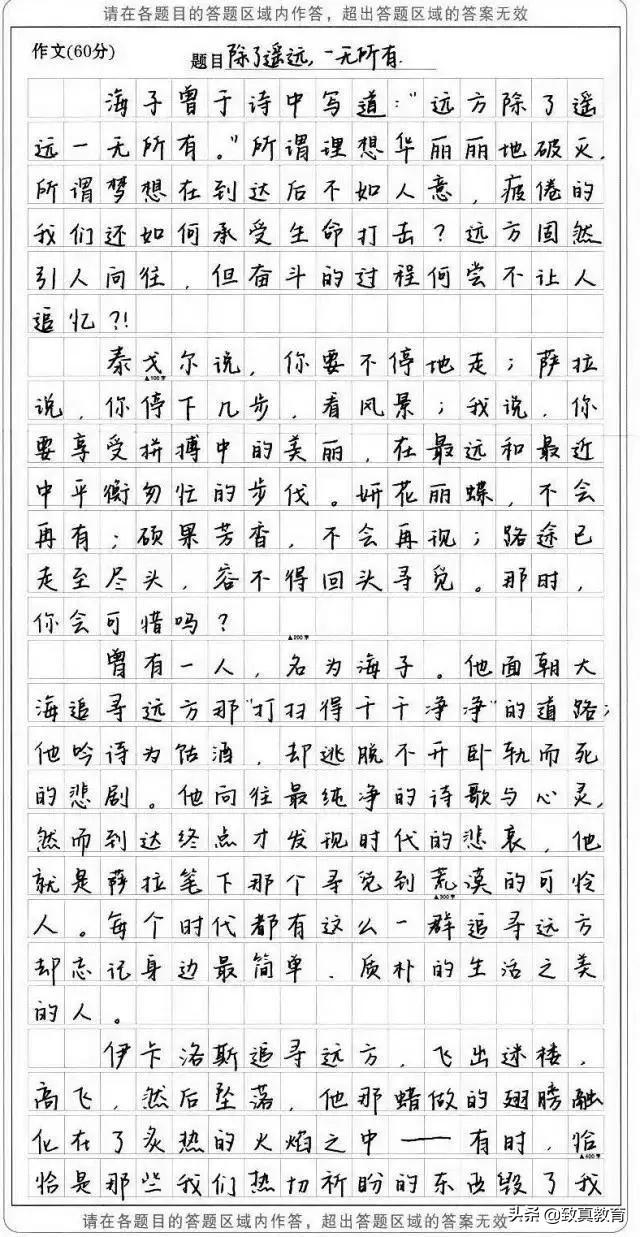 请在各题目的答题区域内作答，超出答题区域的答案无效
作文(60分)
题目 除了遥远，一无所有.
海子曾于诗中写道：“远方除了遥
远一无所有。”所谓理想华丽丽地破灭，
所谓梦想在到达后不如人意，疲倦的
我们还如何承受生命打击？远方固然
引人向往，但奋斗的过程何尝不让人
追忆?!
泰戈尔说，你要不停地走；萨拉
▲100字
说，你停下几步，看风景；我说，你
要享受拼搏中的美丽，在最远和最近
中平衡匆忙的步伐。妍花丽蝶，不会
再有；硕果芳香，不会再现；路途已
走至尽头，容不得回头寻觅。那时，
你会可惜吗？
▲200字
曾有一人，名为海子。他面朝大
海追寻远方那“打扫得干干净净”的道路；
他吟诗为酤酒，却逃脱不开卧轨而死
的悲剧。他向往最纯净的诗歌与心灵，
然而到达终点才发现时代的悲哀，他
就是萨拉笔下那个寻觅到荒漠的可怜
▲300字
人。每个时代都有这么一群追寻远方
却忘记身边最简单、质朴的生活之美
的人。
伊卡洛斯追寻远方，飞出迷楼，
高飞，然后坠落，他那蜡做的翅膀融
化在了炙热的火焰之中——有时，恰
▲400字
恰是那些我们热切祈盼的东西毁了我
请在各题目的答题区域内作答，超出答题区域的答案无效
头条 @致真教育